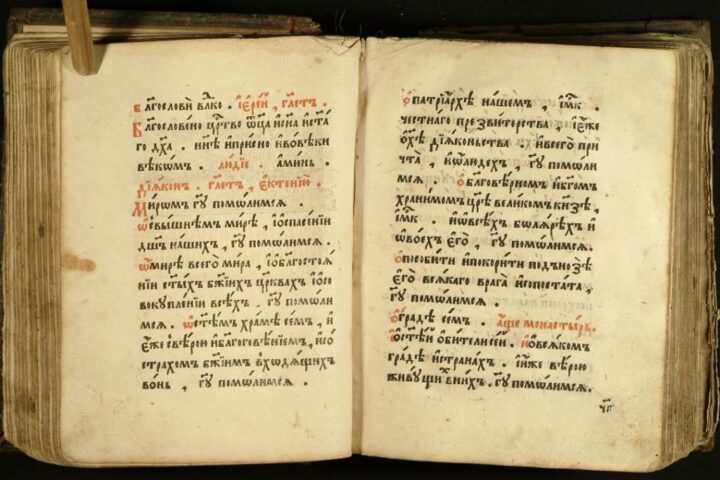 благослови влⷣко . і҆ере́й , гл҃етъ .
Бл҃гослове́но црⷭ҇тво ѻ҆ц҃а и҆сн҃а и҆ст҃а
го дх҃а . нн҃ѣ и҆при́сно и҆вовѣ́ки
вѣко́мъ . лю́дїе . а҆ми́нь .
Дїѧ́конъ . гл҃етъ , є҆ктенїю̀ .
Ми́ромъ гд҇у помо́лимсѧ .
Ѡ҆свы́шнемъ ми́рѣ , і҆ѡ҆спасе́нїи
дш҃ъ на́шихъ , гд҇у помо́лимсѧ .
Ѡ҆ми́рѣ всего̀ ми́ра , і҆ѡ҆бл҃госто́ѧ
нїи ст҃ы́хъ бж҃їихъ цр҃квахъ і҆ѡ҆со
вокупле́нїи всѣ́хъ . гд҇у помо́ли
мсѧ . Ѡ҆ст҃ѣ́мъ хра́мѣ се́мъ , и҆
є҆́же свѣ́рою и҆бл҃гоговѣ́нїемъ , и҆со
стра́хомъ бж҃їимъ вхо́дѧщихъ
во́нь , гд҇у помо́лимсѧ .
Ѻ҆ патрїа́рхѣ на́шемъ , и҆м҃къ .
честна́го презви́терства , і҆є҆́же
ѻ҆хѣ̀ дїѧ́коньства . и҆всего̀ при
чта̀ , и҆ѡ҆лю́дехъ , гд҇у помо́ли
мсѧ . Ѻ҆бл҃говѣ́рномъ и҆бг҃омъ
храни́момъ цр҃ѣ̀ вели́комъ кн҃зѣ ,
и҆м҃къ . и҆ѡ҆всѣ́хъ болѧ́рѣхъ и҆
ѡ҆во́ехъ є҆го̀ , гд҇у помо́лимсѧ .
Ѻ҆посо́бити и҆покори́ти подъно́зѣ
є҆го̀ всѧ́каго врага̀ и҆сопоста́та ,
гд҇у помо́лимсѧ .
Ѻ҆гра́дѣ се́мъ . а҆́ще монасты́рь .
Ѻ҆ст҃ѣ́й ѻ҆би́тели се́й . и҆ѡ҆всѧ́комъ
гра́дѣ и҆стра́нахъ . и҆и҆́же вѣ́рою
живу́щихъ вни́хъ . гд҇у помо́лимсѧ .
чг҃